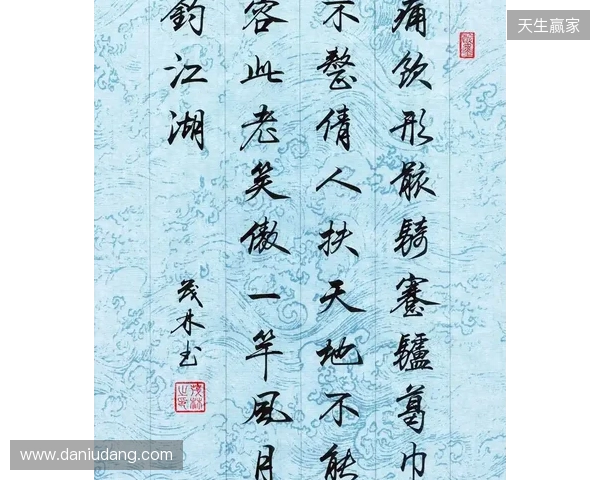 痛飲形骸騎蹇驢葛巾
不整倩人扶天地不能
容此老笑傲一竿風月
釣江湖
茂林书
天生赢家
www.daniudang.com